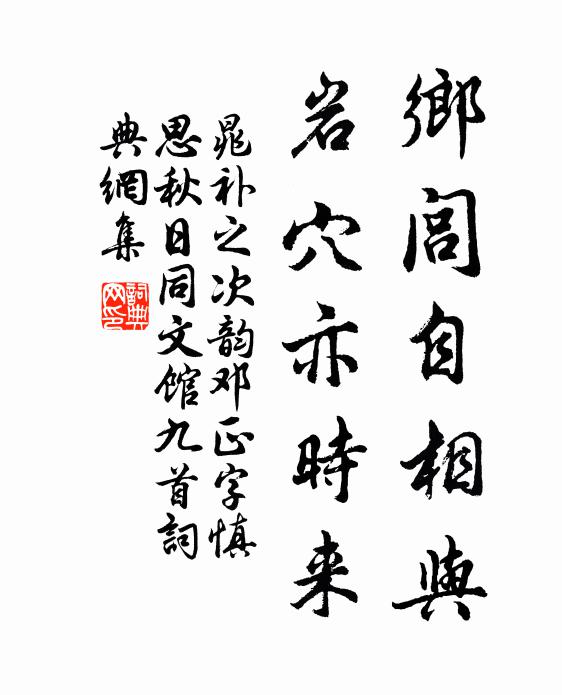 鄉閭自相與
岩穴亦時来
晁补之次韵邓正字慎
思秋日同文馆九首詞
典網集
詞典网印